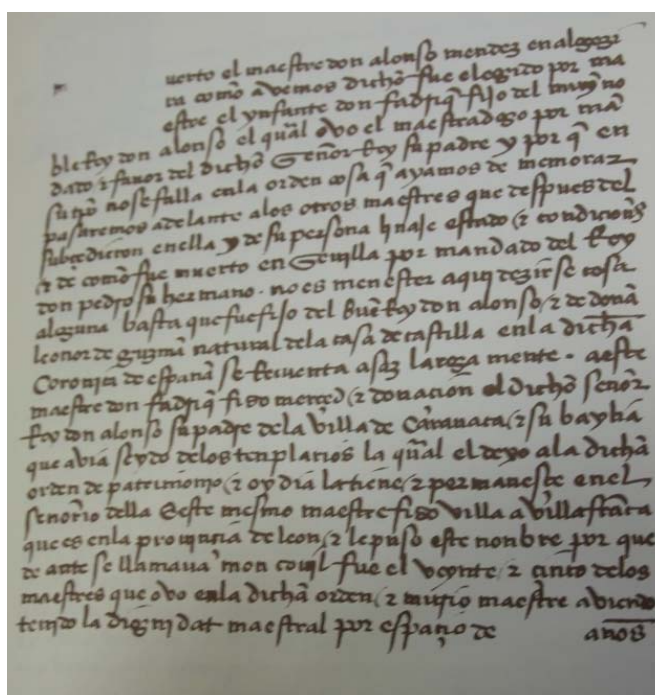 uerto el maestre don alonso mendez en algezi
ra como avemos dicho fue elegido por ma
estre el ynfante don fadriq̃ fijo del muy no
ble Rey don alonso el qual ovo el maestradgo por mã
dado ⁊ favor del dicho Señor Rey su padre y por q̃ en
su tp̃o no se falla en la orden cosa q̃ ayamos de memoraz
pasaremos adelante a los otros maestres que despues del
subcedieron en ella y de su persona linaje estado ⁊ condiciones
⁊ de como fue muerto en Sevilla por mandado del Rey
don pedro su hermano. no es menester aqui dezirse cosa
alguna basta que fue fijo del buẽ Rey don alonso ⁊ de doña
leonor de guzmã natural de la casa de castilla en la dicha
Coronica de españa se Recuenta asaz larga mente. a este
maestre don fadriq̃ fizo merced ⁊ donacion el dicho señor
Rey don alonso su padre de la villa de Caravaca ⁊ su baylia
que abia seydo de los templarios la qual el dexo a la dicha
orden de patrimonio ⁊ oy dia la tiene ⁊ permanesce en el
señorio della Este mesmo maestre fizo villa a villafrãca
que es en la provinçia de leon ⁊ le puso este nonbre por que
de ante se llamava mon covil fue el veynte ⁊ cinco de los
maestres que ovo en la dicha orden ⁊ murio maestre aviendo
tenido la dignidat maestral por espaçio de años